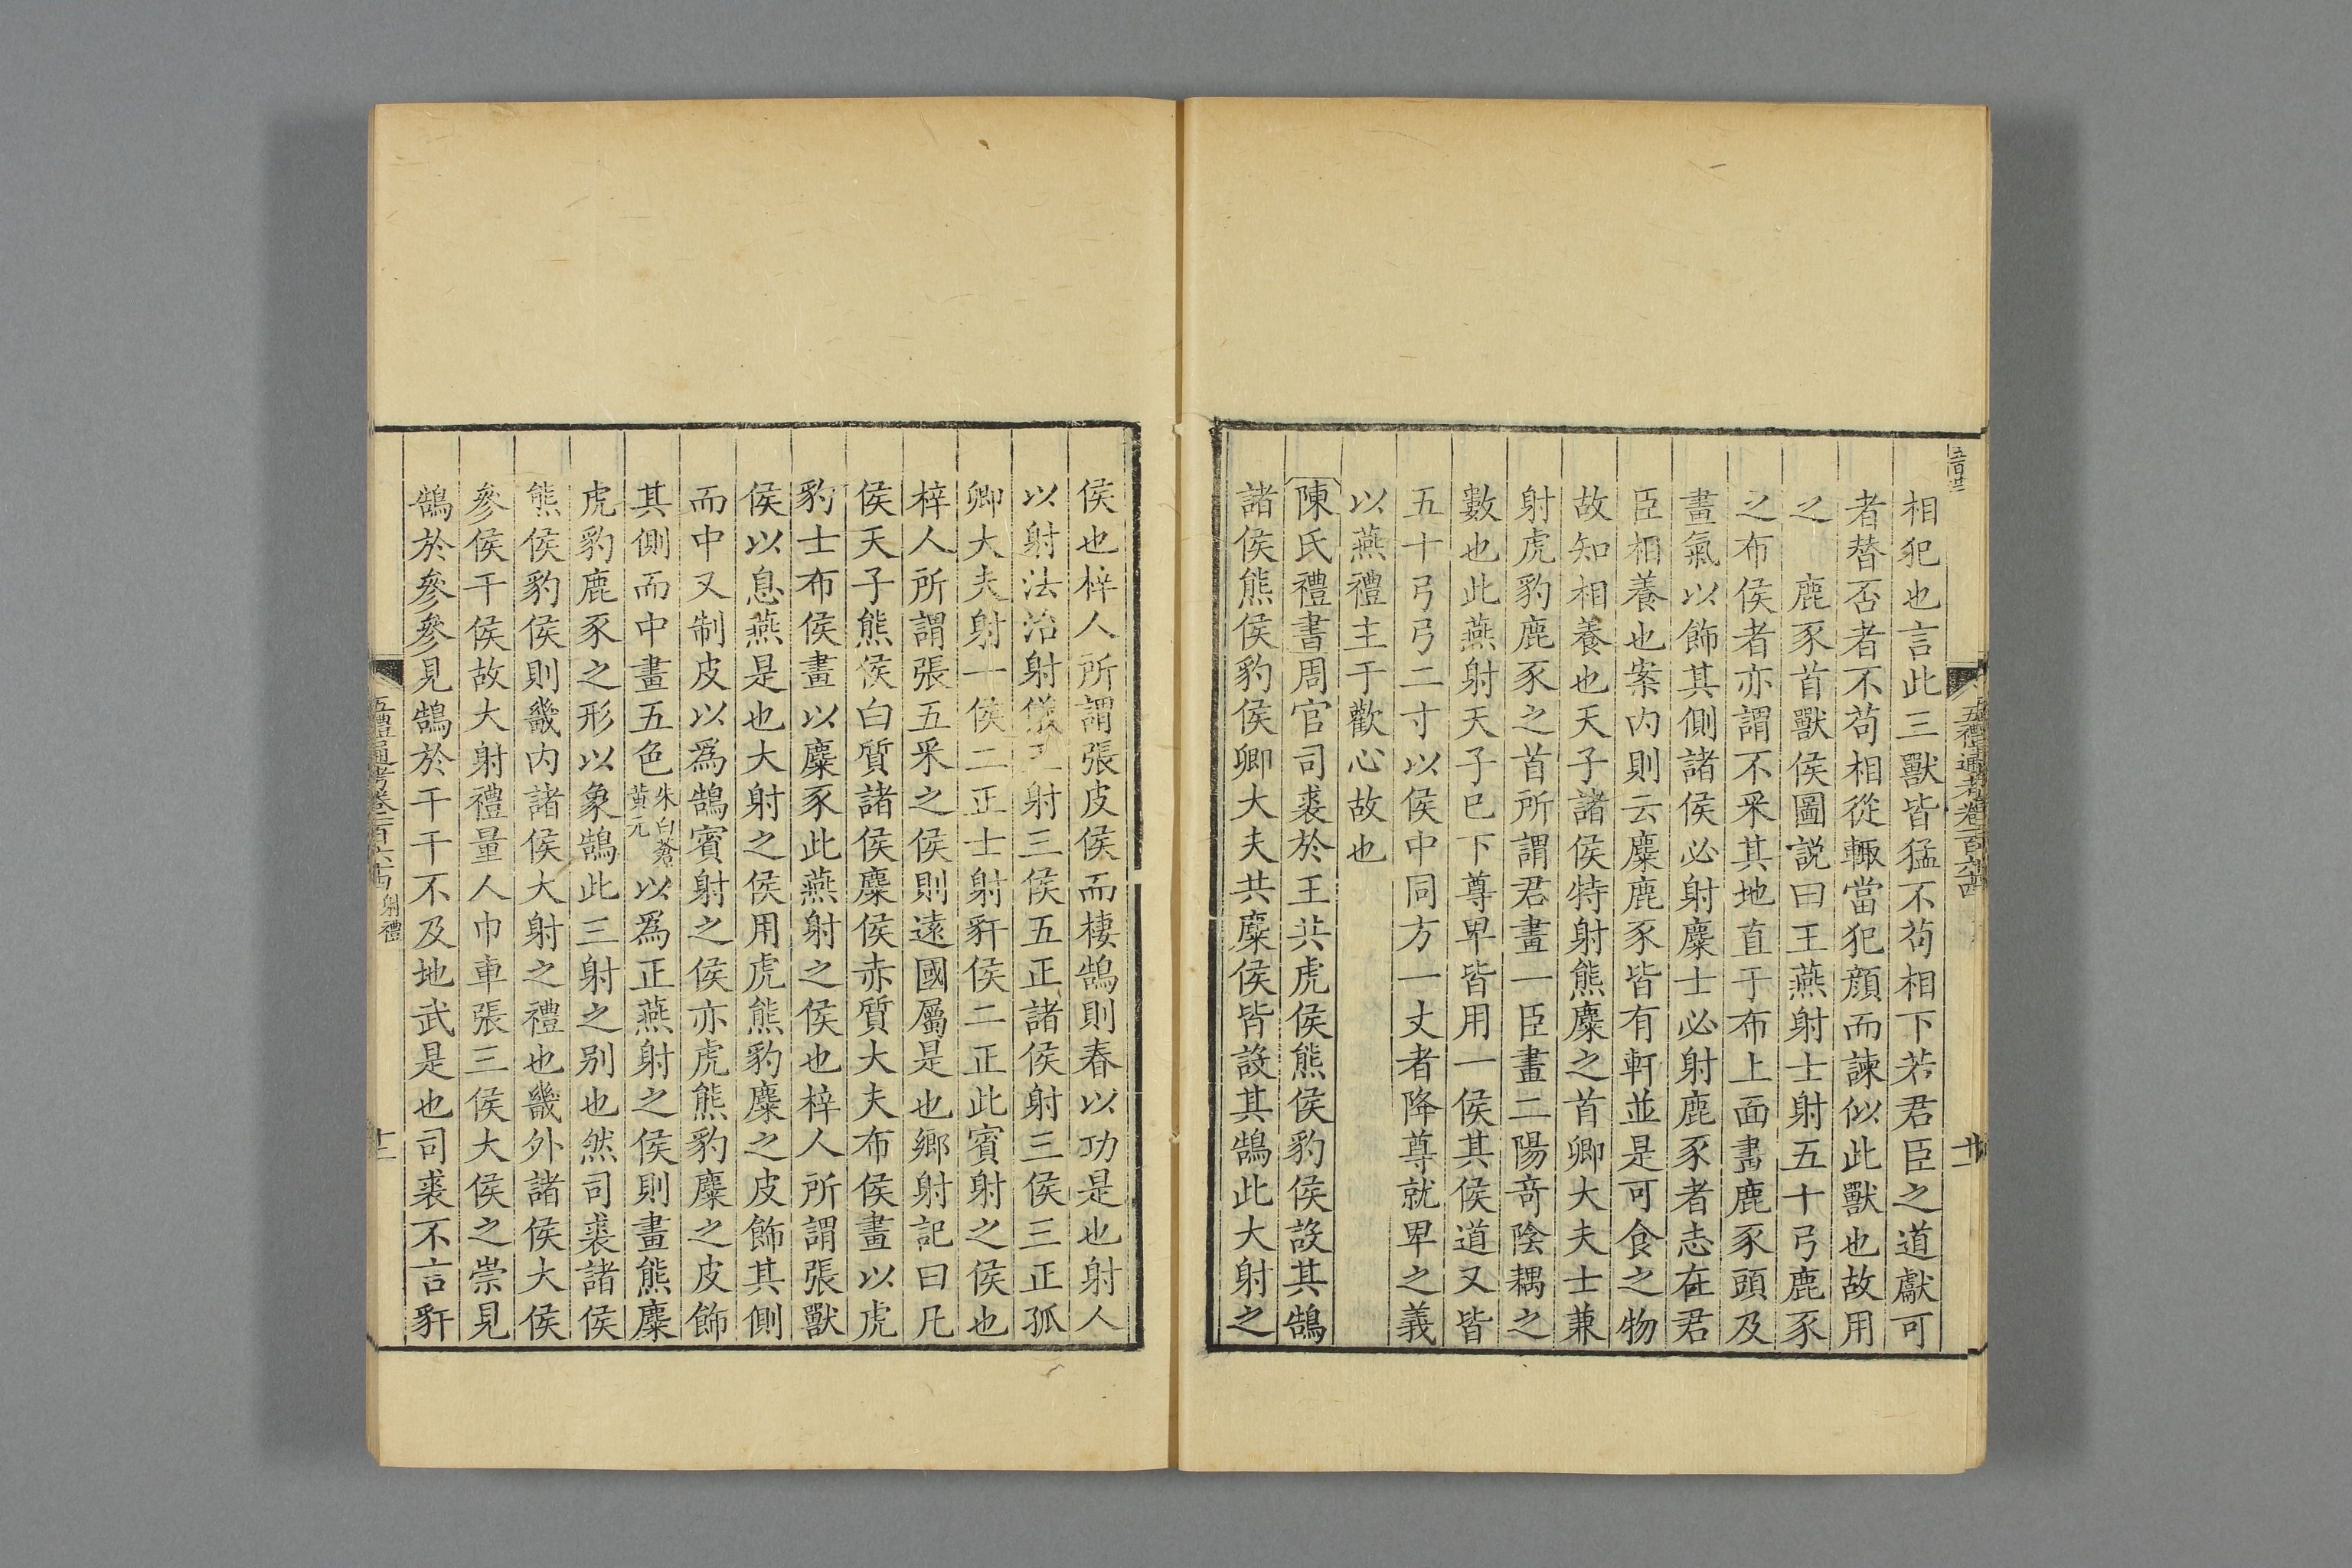 相犯也言此三獸皆猛不苟相下若君臣之道獻可
者替否者不苟相從輒當犯顔而諫似此獸也故用
之　鹿豕首獸侯圖説曰王燕射士射五十弓鹿豕
之布侯者亦謂不采其地直于布上面畵鹿豕頭及
畫氣以飾其側諸侯必射麋士必射鹿豕者志在君
臣相養也案内則云麋鹿豕皆有軒並是可食之物
故知相養也天子諸侯特射熊麋之首卿大夫士兼
射虎豹鹿豕之首所謂君畫一臣畫二陽竒陰耦之
數也此燕射天子已下尊卑皆用一侯其侯道又皆
五十弓弓二寸以侯中同方一丈者降尊就卑之義
以燕禮主于歡心故也
陳氏禮書周官司裘於王共虎侯熊侯豹侯設其鵠
諸侯熊侯豹侯卿大夫共麋侯皆設其鵠此大射之
侯也梓人所謂張皮侯而棲鵠則春以功是也射人
以射法治射儀王射三侯五正諸侯射三侯三正孤
卿大夫射一侯二正士射豻侯二正此賓射之侯也
梓人所謂張五采之侯則遠國屬是也鄉射記曰凡
侯天子熊侯白質諸侯麋侯赤質大夫布侯畫以虎
豹士布侯畫以麋豕此燕射之侯也梓人所謂張獸
侯以息燕是也大射之侯用虎熊豹麋之皮飾其側
而中又制皮以爲鵠賓射之侯亦虎熊豹麋之皮飾
其側而中畫五色朱白蒼黄元以爲正燕射之侯則畫熊麋
虎豹鹿豕之形以象鵠此三射之别也然司裘諸侯
熊侯豹侯則畿内諸侯大射之禮也畿外諸侯大侯
參侯干侯故大射禮量人巾車張三侯大侯之崇見
鵠於參參見鵠於干干不及地武是也司裘不言豻
五禮通考卷一百六十四 射禮
十二